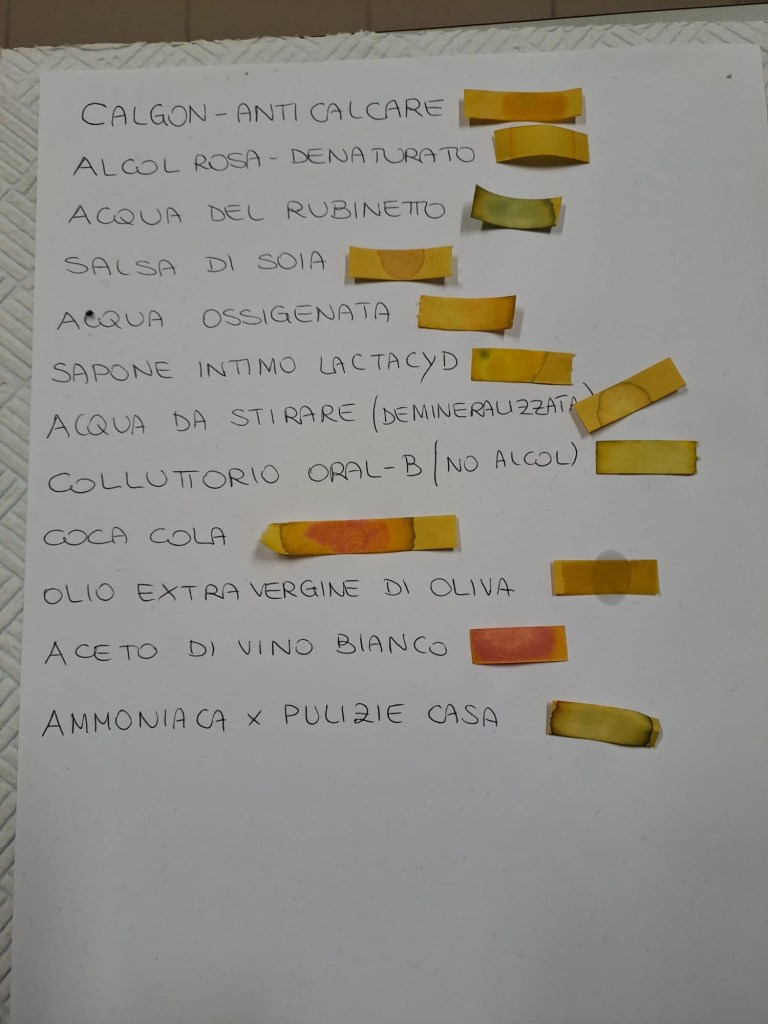 CALGON-ANTICALCARE
ALCOL ROSA-DENATURATO
ACQUA DEL RUBINETTO
SALSA DI SOIA
ACQUA OSSIGENATA
SAPONE INTIMO LACTACYD
ACQUA DA STIRARE (DEMINERALIZZATA)
COLLUTTORIO ORAL-B (NO ALCOL)
COCA COLA
OLIO EXTRAVERGINE DI OLIVA
ACETO DI VINO BIANCO
AMMONIACA x PULIZIE CASA